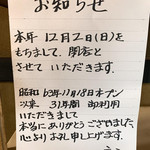 お知らせ
本年 12月2日(日)を
もちまして、閉店と
させて いただきます。
昭和 63年11月18日オープン
以来、31年間 御利用
いただきまして
本当にありがとうございました。
心より お礼 申し上げます。